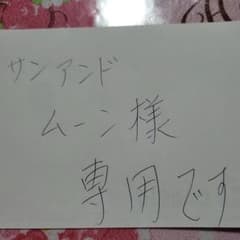 サンアンド
ムーン様
専用です